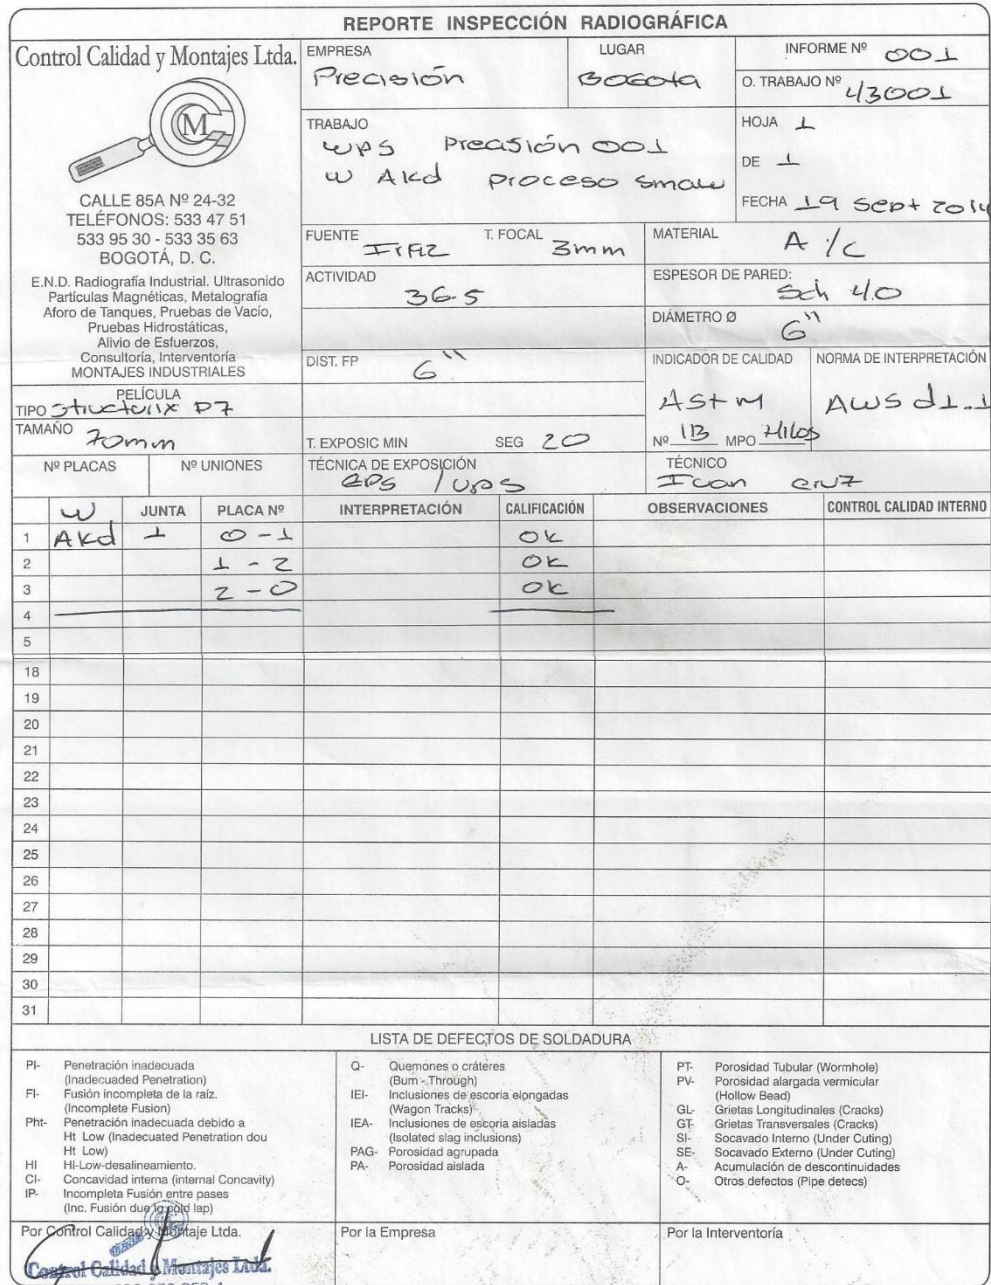 REPORTE INSPECCIÓN RADIOGRÁFICA
Control Calidad y Montajes Ltda.
CALLE 85A Nº 24-32
TELÉFONOS: 533 47 51
533 95 30 - 533 35 63
BOGOTÁ, D. C.
E.N.D. Radiografía Industrial. Ultrasonido
Partículas Magnéticas, Metalografía
Aforo de Tanques, Pruebas de Vacío,
Pruebas Hidrostáticas,
Alivio de Esfuerzos,
Consultoría, Interventoría
MONTAJES INDUSTRIALES
EMPRESA Precisión
LUGAR Bogota
INFORME Nº 001
O. TRABAJO Nº 43001
TRABAJO
WPS Precisión 001
W Akd proceso smaw
HOJA 1
DE 1
FECHA 19 Sept 2014
FUENTE Ir192
T. FOCAL 3mm
MATERIAL A/C
ACTIVIDAD 36.5
ESPESOR DE PARED: Sch 40
DIÁMETRO Ø 6"
DIST. FP 6"
INDICADOR DE CALIDAD ASTM
Nº 1B MPO Hilos
NORMA DE INTERPRETACIÓN
AWS d1.1
PELÍCULA
TIPO Structurix D7
TAMAÑO 70mm
T. EXPOSIC MIN SEG 20
Nº PLACAS Nº UNIONES
TÉCNICA DE EXPOSICIÓN
TÉCNICO
cruz
W JUNTA PLACA Nº INTERPRETACIÓN CALIFICACIÓN OBSERVACIONES CONTROL CALIDAD INTERNO
1 Akd 1 0-1 OK
2 1-2 OK
3 2-0 OK
4
5
18
19
20
21
22
23
24
25
26
27
28
29
30
31
LISTA DE DEFECTOS DE SOLDADURA
PI- Penetración inadecuada
(Inadecuaded Penetration)
FI- Fusión incompleta de la raíz.
(Incomplete Fusion)
Pht- Penetración inadecuada debido a
Ht Low (Inadecuated Penetration dou
Ht Low)
HI Hi-Low-desalineamiento.
CI- Concavidad interna (internal Concavity)
IP- Incompleta Fusión entre pases
(Inc. Fusión due to cold lap)
Q- Quemones o cráteres
(Burn - Through)
IEI- Inclusiones de escoria elongadas
(Wagon Tracks)
IEA- Inclusiones de escoria aisladas
(Isolated slag inclusions)
PAG- Porosidad agrupada
PA- Porosidad aislada
PT- Porosidad Tubular (Wormhole)
PV- Porosidad alargada vermicular
(Hollow Bead)
GL- Grietas Longitudinales (Cracks)
GT- Grietas Transversales (Cracks)
SI- Socavado Interno (Under Cuting)
SE- Socavado Externo (Under Cuting)
A- Acumulación de descontinuidades
O- Otros defectos (Pipe detecs)
Por Control Calidad y Montaje Ltda.
Por la Empresa
Por la Interventoría
Control Calidad y Montajes Ltda.